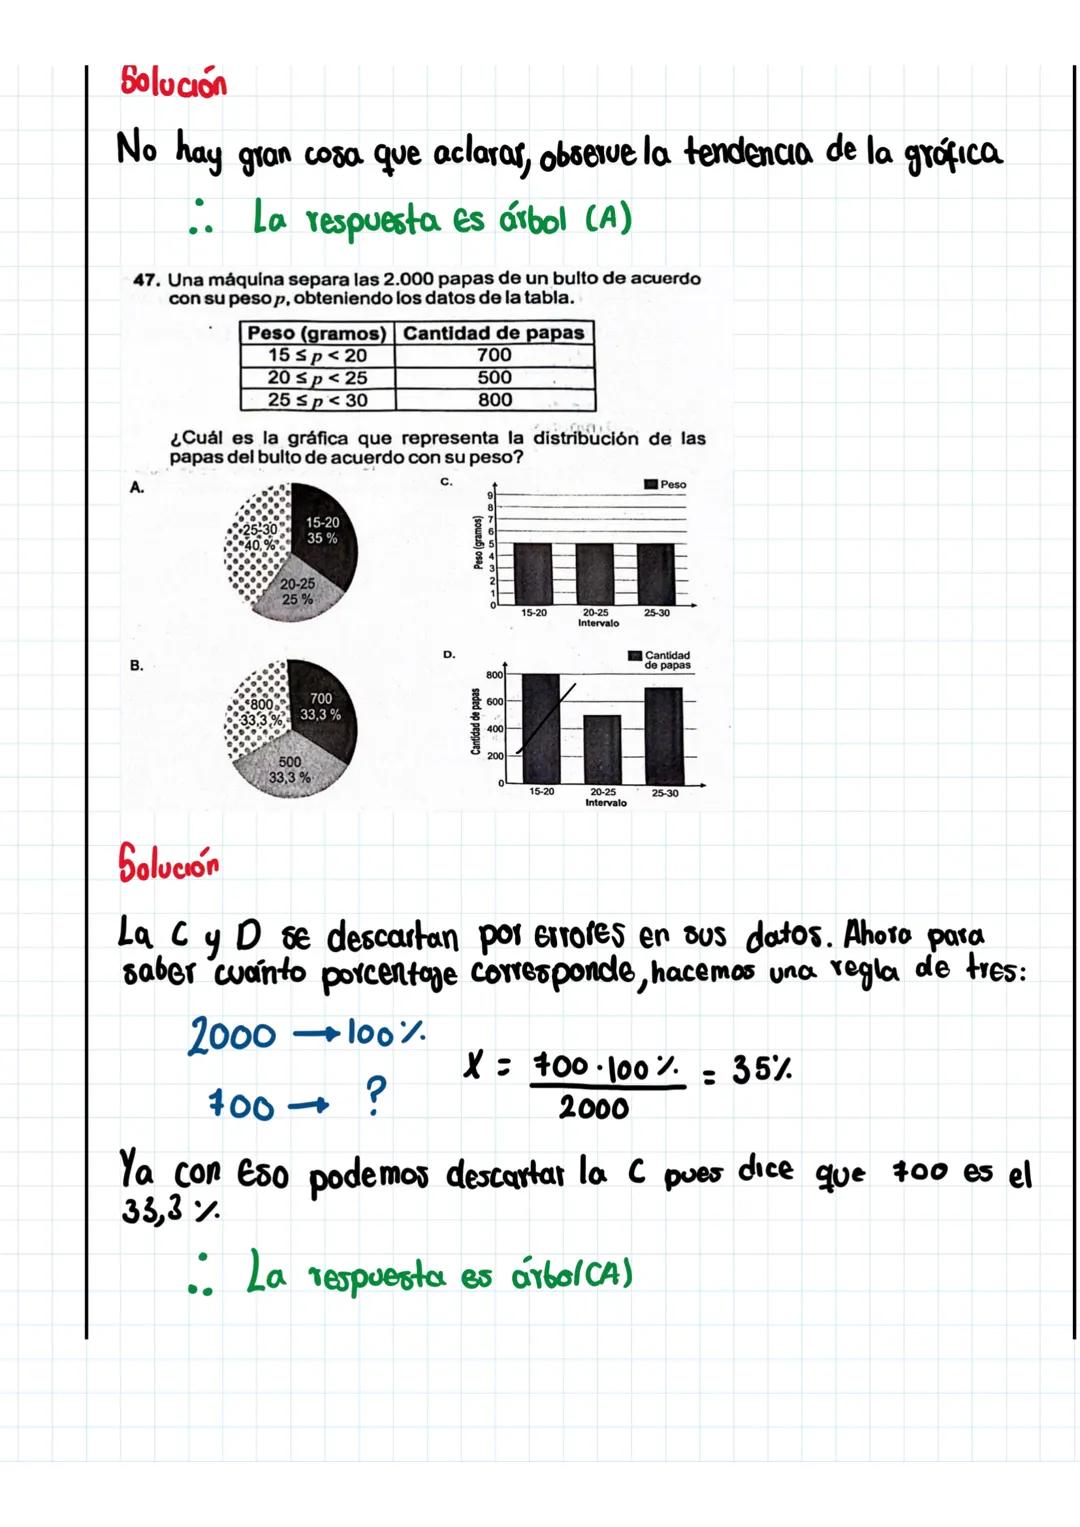 Solución
No hay gran cosa que aclarar, observe la tendencia de la gráfica
∴ La respuesta es árbol (A)
47. Una máquina separa las 2.000 papas de un bulto de acuerdo
con su peso p, obteniendo los datos de la tabla.
Peso (gramos) Cantidad de papas
15 ≤ p < 20 700
20 ≤ p < 25 500
25 ≤ p < 30 800
¿Cuál es la gráfica que representa la distribución de las
papas del bulto de acuerdo con su peso?
A.
25-30
40 %
15-20
35 %
20-25
25 %
C.
Peso
Peso (gramos)
9
8
7
6
5
4
3
2
1
0
15-20 20-25 25-30
Intervalo
B.
800
33,3 %
700
33,3 %
500
33,3 %
D.
Cantidad
de papas
Cantidad de papas
800
600
400
200
0
15-20 20-25 25-30
Intervalo
Solución
La C y D se descartan por errores en sus datos. Ahora para
saber cuánto porcentaje corresponde, hacemos una regla de tres:
2000 → 100 %
700 → ?
X = 700 · 100 % = 35%
2000
Ya con eso podemos descartar la C pues dice que 700 es el
33,3 %
∴ La respuesta es árbol (A)